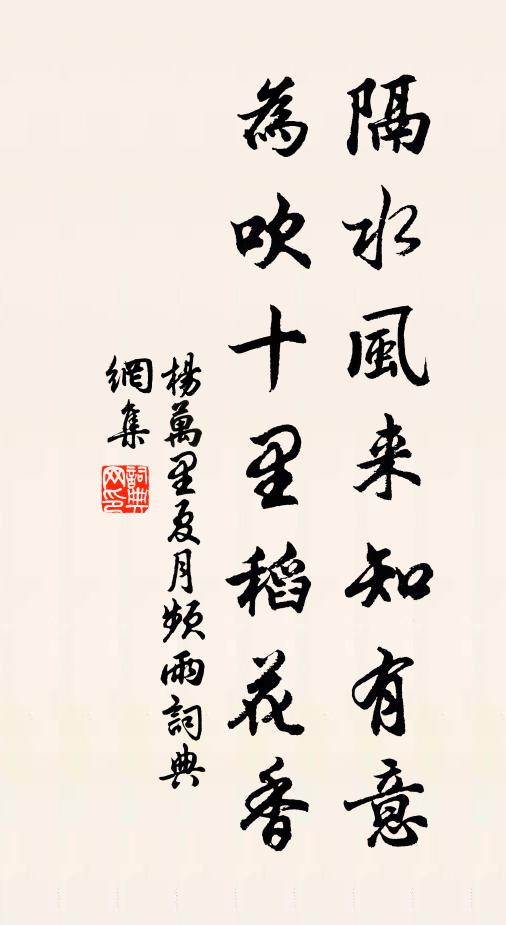 隔水風来知有意
為吹十里稻花香
楊萬里夏月頻雨詞典
網集
詞典網印